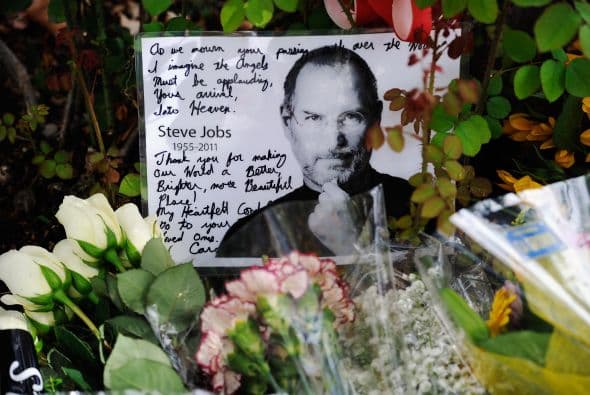 As we mourn your passing over the
I imagine the Angels
Must be applauding,
Your arrival,
Into Heaven.
Steve Jobs
1955-2011
Thank you for making
our World a Better,
Brighter, more Beautiful
Place!
My Heartfelt
Go to your
Loved Ones.